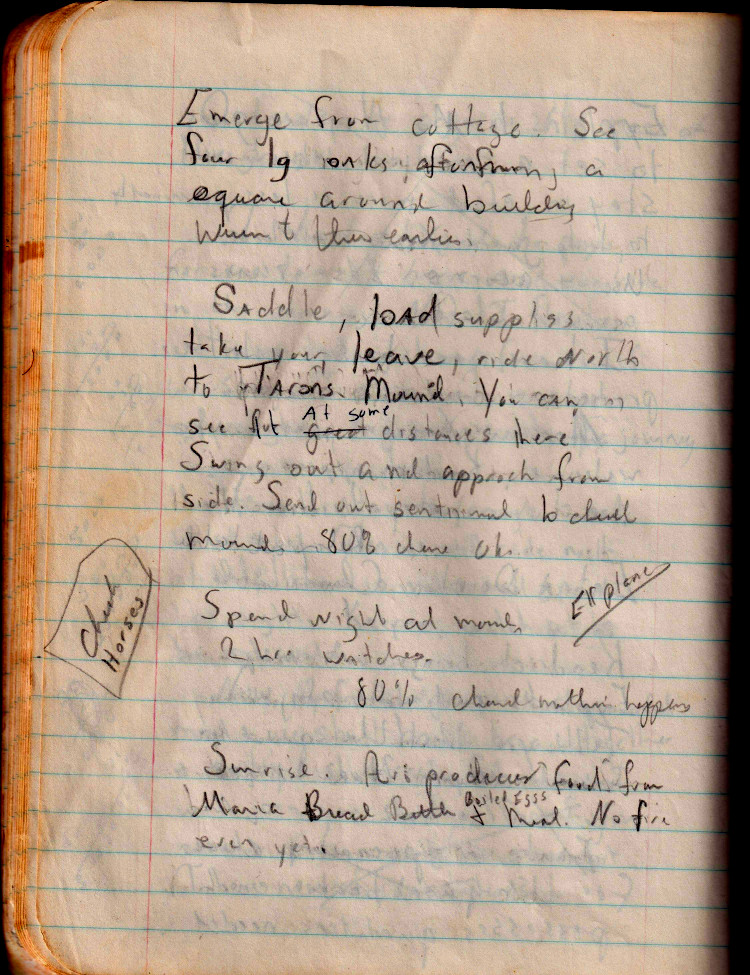 Emerge from cottage. See
four lg oaks, a
square around building
Wasn't there earlier.
SAddle, loAd supplies
take your leave, ride North
to TArons Mound. You CAN
see but At some great distances there
Swing out and approch from
side. Send out sentinal to check
mound. 80% chance ok.
Explane
Check
Horses
Spend night at mound
2 hr watches.
80% chance nothin happens
Sunrise. Ari produces food from
Bread Boiled Eggs + Meat. No fire
even yet.